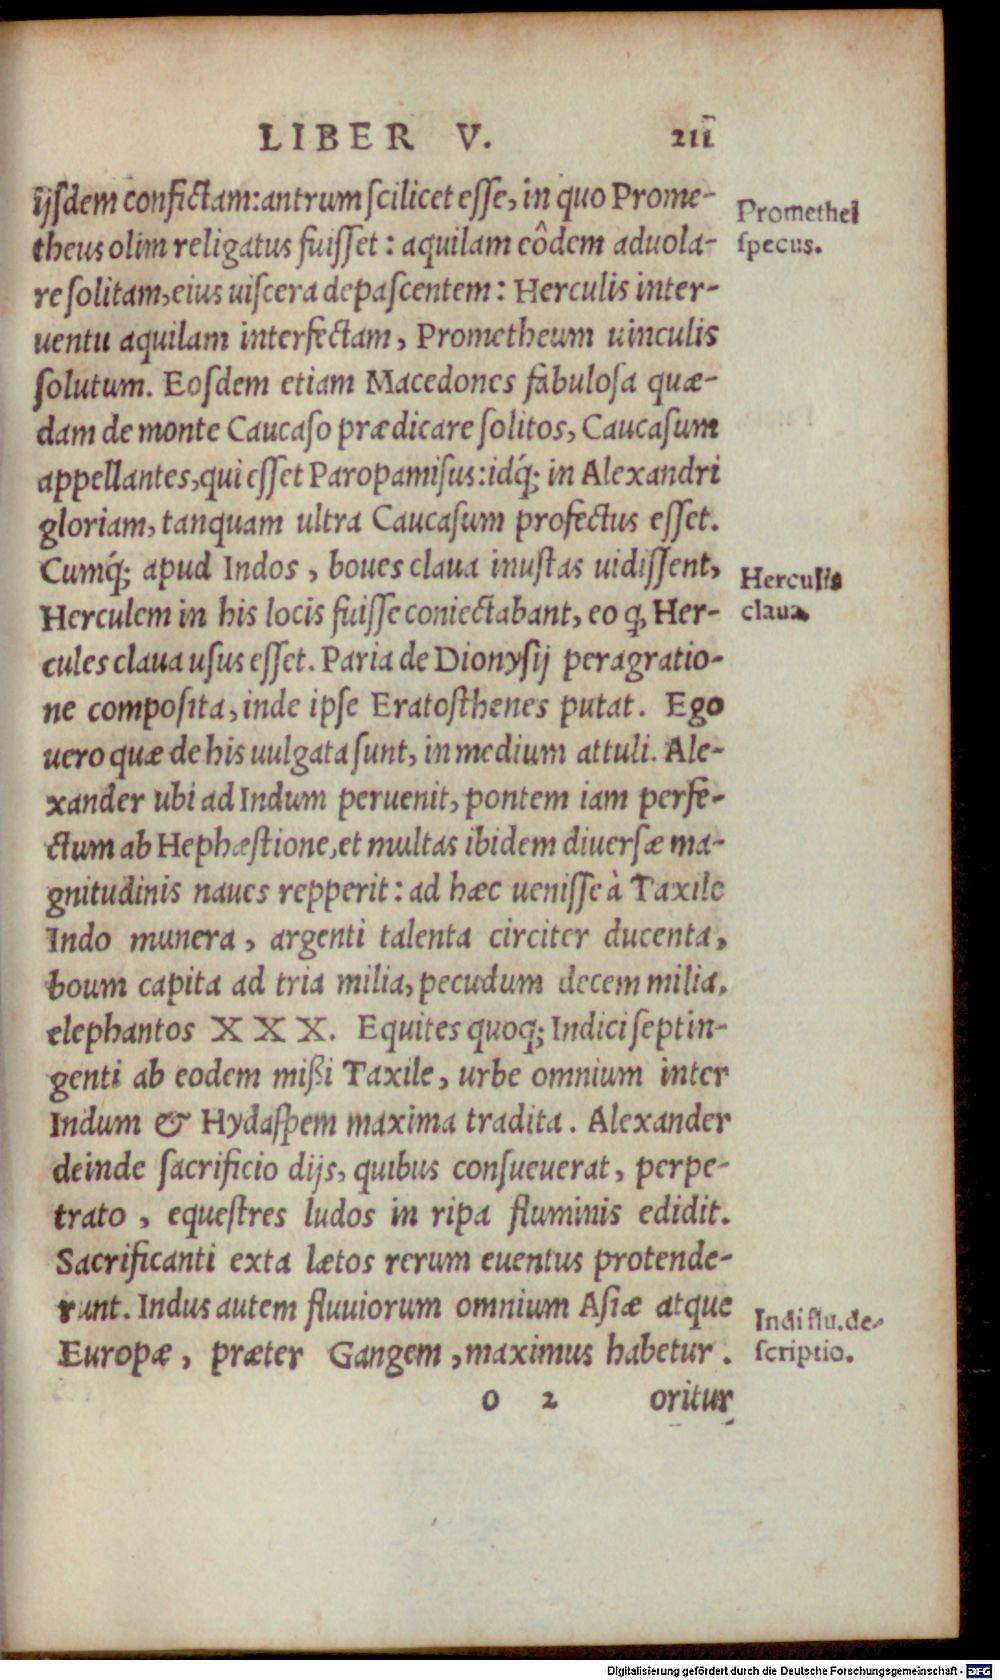 LIBER V. 211
ijsdem confictam: antrum scilicet esse, in quo Prome-
theus olim religatus fuisset : aquilam eôdem aduola-
re solitam, eius uiscera depascentem : Herculis inter-
uentu aquilam interfectam, Prometheum uinculis
solutum. Eosdem etiam Macedones fabulosa quæ-
dam de monte Caucaso prædicare solitos, Caucasum
appellantes, qui esset Paropamisus: idq́; in Alexandri
gloriam, tanquam ultra Caucasum profectus esset.
Cumq́; apud Indos , boues claua inustas uidissent,
Herculem in his locis fuisse coniectabant, eo ꝙ Her-
cules claua usus esset. Paria de Dionysij peragratio-
ne composita, inde ipse Eratosthenes putat. Ego
uero quæ de his uulgata sunt, in medium attuli. Ale-
xander ubi ad Indum peruenit, pontem iam perfe-
ctum ab Hephæstione, et multas ibidem diuersæ ma-
gnitudinis naues repperit : ad hæc uenisse à Taxile
Indo munera , argenti talenta circiter ducenta,
boum capita ad tria milia, pecudum decem milia,
elephantos XXX. Equites quoq; Indici septin-
genti ab eodem mißi Taxile, urbe omnium inter
Indum & Hydaspem maxima tradita. Alexander
deinde sacrificio dijs, quibus consueuerat, perpe-
trato , equestres ludos in ripa fluminis edidit.
Sacrificanti exta lætos rerum euentus protende-
runt. Indus autem fluuiorum omnium Asiæ atque
Europæ , præter Gangem , maximus habetur .
o 2 oritur
Promethei
specus.
Herculis
claua.
Indi flu. de-
scriptio.
Digitalisierung gefördert durch die Deutsche Forschungsgemeinschaft - DFG